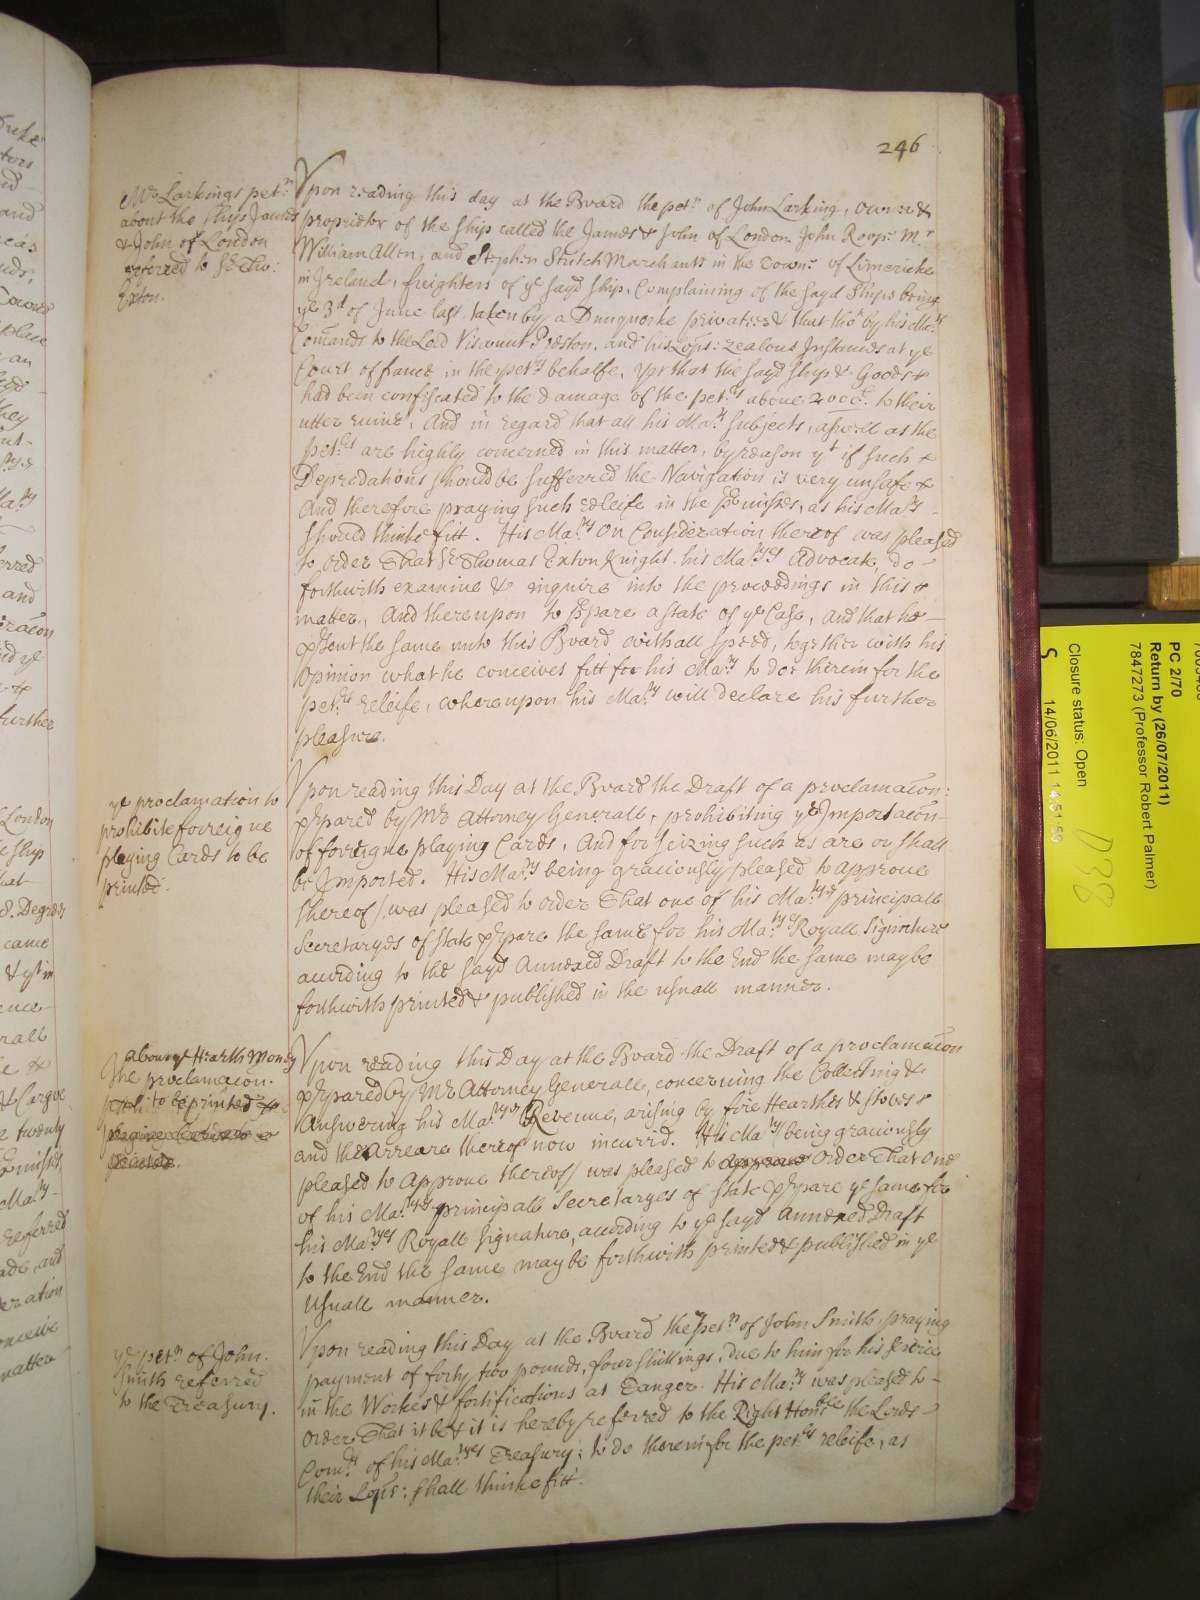 246
Mr Larkings petn
about the ship James
& John of London
referred to Sr Tho:
Exton.
Vpon reading this day at the Board the petn of John Larking, owner &
proprietor of the ship called the James & John of London. John Roop: Mr
William Allen, and Stephen Stritch Marchants in the Towne of Limericke
in Ireland, freighters of ye sayd ship, Complaining of the sayd Ships being
ye 3d of June last, taken by a Dunquerke privateer & that tho' by his Maties
Comands to the Lord Viscount Preston, and his Lops: zealous Instances at ye
Court of france in the petrs behalfe, Yet that the sayd ship & Goods
had been confiscated to the damage of the petrs aboue 2000£ to their
utter ruine, And in regard that all his Mats Subjects, aswell as the
petrs are highly concerned in this matter, by reason yt if such
Depredations should be sufferred the Navigation is very unsafe &
And therefore praying such releife in the pmisses, as his Maty
should thinke fitt. His Maty on Consideration thereof was pleased
to order That Sr Thomas Exton Knight his Matyes Advocate, do
forthwith examine & inquire into the proceedings in this
matter, And thereupon to ppare a state of ye Case, and that he
psent the same unto this Board with all speed, together with his
Opinion what he conceives fitt for his Maty to do therein for the
petrs releife, whereupon his Maty will declare his further
pleasure.
ye proclamation to
prohibite forreigne
playing Cards to be
printed.
Vpon reading this Day at the Board the Draft of a proclamacon
ppared by Mr Attorney Generall, prohibiting ye Importacon
of foreigne playing Cards, And for seizing such as are or shall
be Imported. His Maty being graciously pleased to approue
thereof/ was pleased to order That one of his Matyes principall
Secretaryes of State ppare the same for his Matyes Royall Signature
according to the sayd Annexed Draft to the End the same may be
forthwith printed & published in the usuall manner.
about ye Hearth Money
The proclamacon.
to be printed
Vpon reading this Day at the Board the Draft of a proclamacon
ppared by Mr Attorney Generall, concerning the Collecting &
Answering his Matyes Revenue, arising by fire Hearthes & stoves
and the Arreare thereof now incurrd. His Maty being graciously
pleased to Approue thereof/ was pleased to approue Order That one
of his Matyes principall Secretaryes of State ppare ye same for
his Matyes Royall Signature, according to ye sayd Annexed Draft
to the End the same may be forthwith printed & published in ye
Usuall manner.
ye petn of John
Smith referred
to the Treasury.
Vpon reading this Day at the Board the petn of John Smith praying
payment of forty two pounds, four shillings, due to him for his service
in the Workes & fortifications at Tanger. His Maty was pleased to
order That it be & it is hereby referred to the Right Honble the Lords
Comrs of his Matyes Treasury; to do therein for the petrs releife, as
their Lops: shall thinke fitt.
PC 2/70
Return by (26/07/2011)
7847273 (Professor Robert Palmer)
Closure status: Open
S 14/06/2011 14:51:50
D38